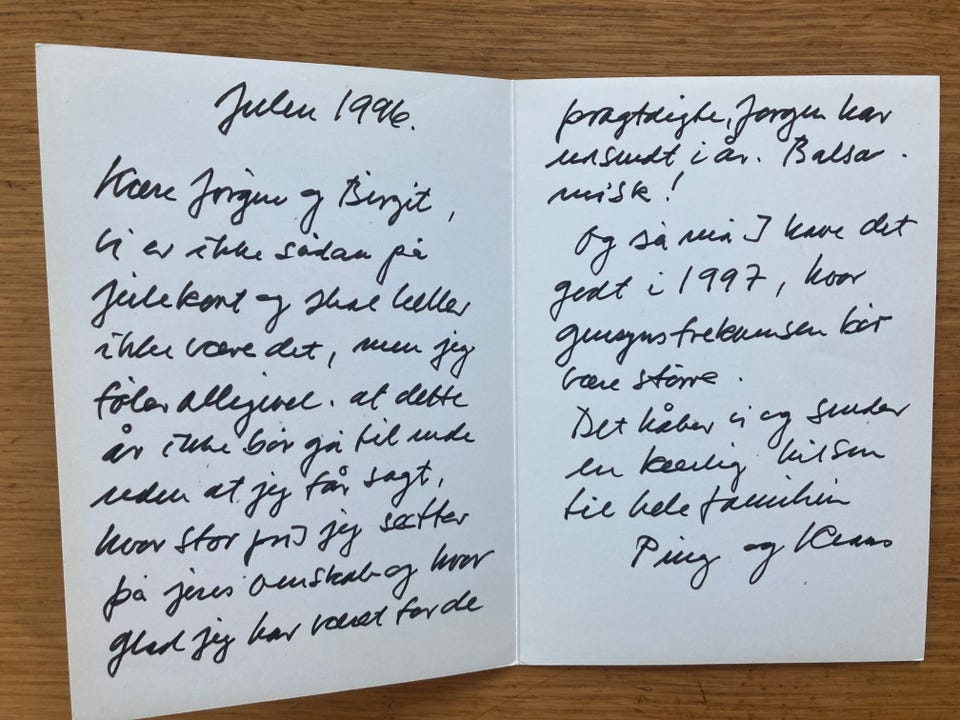 Julen 1996.
Kære Jørgen og Birgit,
Vi er ikke sådan på
julekort og skal heller
ikke være det, men jeg
føler alligevel. at dette
år ikke bør gå til ende
uden at jeg får sagt,
hvor stor pris jeg sætter
på jeres venskab og hvor
glad jeg har været for de
pragtdigte, Jørgen har
udsendt i år. Balsa-
misk!
Og så må I have det
godt i 1997, hvor
gensynsfrekvensen bør
være større.
Det håber vi og sender
en kærlig hilsen
til hele familien
Ping og Klaus